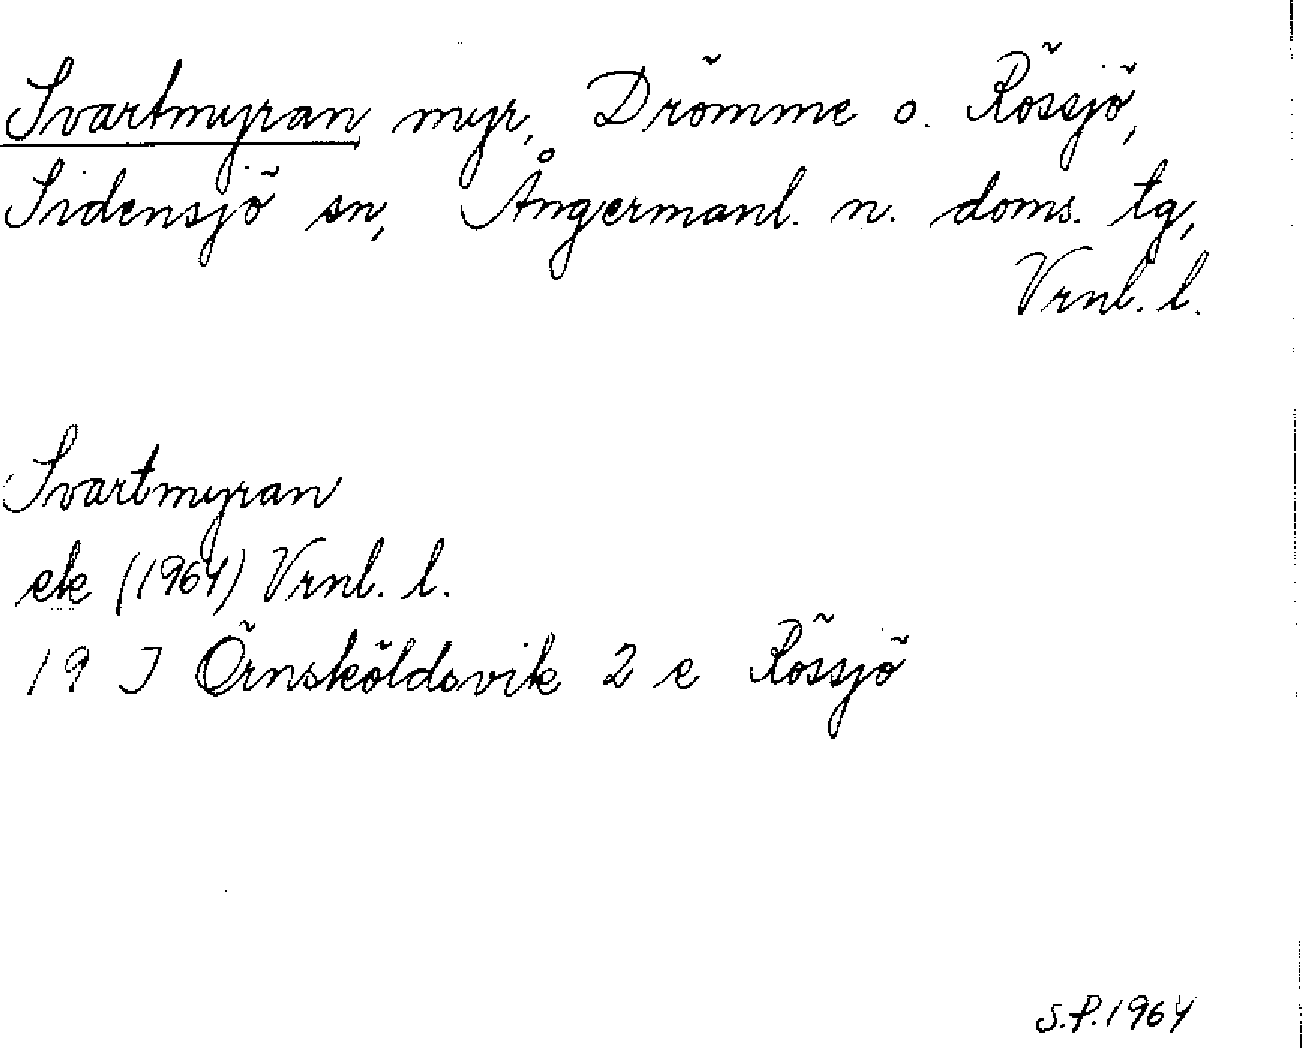 Svartmyran myr, Drömme o. Rössjö,
Sidensjö sn, Ångermanl. n. doms. tg,
Vrnl. l.
Svartmyran
ek (1964) Vrnl. l.
19 J Örnsköldsvik 2 e Rössjö
S.P. 1964